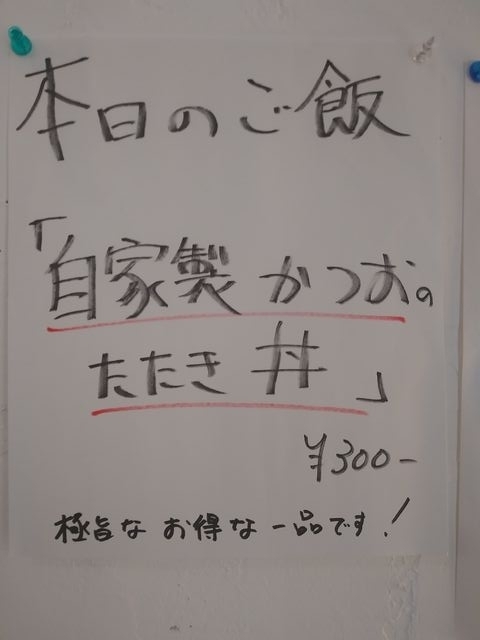 本日のご飯
「自家製かつおの
たたき丼」
¥300-
極旨なお得な一品です!